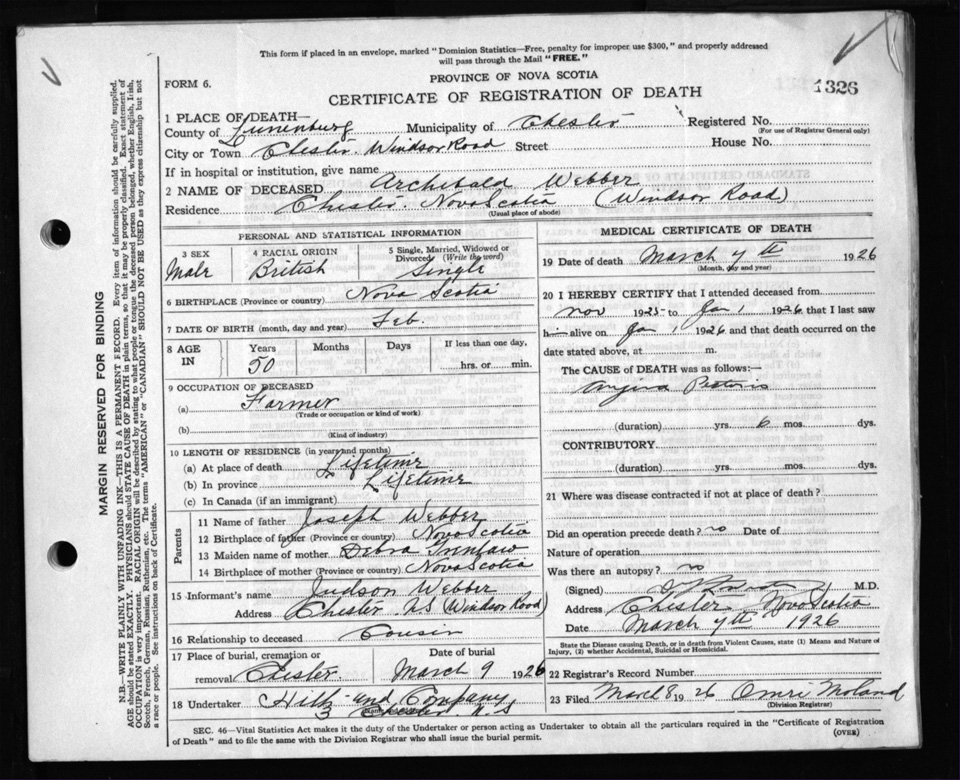 This form if placed in an envelope, marked "Dominion Statistics—Free, penalty for improper use $300," and properly addressed
will pass through the Mail "FREE."
PROVINCE OF NOVA SCOTIA
FORM 6.
1326
CERTIFICATE OF REGISTRATION OF DEATH
1 PLACE OF DEATH—
County of Lunenburg Municipality of Chester Registered No.
(For use of Registrar General only)
City or Town Chester Windsor Road Street House No.
If in hospital or institution, give name
2 NAME OF DECEASED Archibald Webber
Residence Chester Nova Scotia (Windsor Road)
(Usual place of abode)
PERSONAL AND STATISTICAL INFORMATION
3 SEX 4 RACIAL ORIGIN 5 Single, Married, Widowed or
Divorced (Write the word)
Male British Single
6 BIRTHPLACE (Province or country) Nova Scotia
7 DATE OF BIRTH (month, day and year) Feb.
8 AGE IN Years Months Days If less than one day,
50 hrs. or min.
9 OCCUPATION OF DECEASED
(a) Farmer
(Trade or occupation or kind of work)
(b)
(Kind of industry)
10 LENGTH OF RESIDENCE (in years and months)
(a) At place of death Lifetime
(b) In province Lifetime
(c) In Canada (if an immigrant)
Parents
11 Name of father Joseph Webber
12 Birthplace of father (Province or country) Nova Scotia
13 Maiden name of mother Debra
14 Birthplace of mother (Province or country) Nova Scotia
15 Informant's name Judson Webber
Address Chester N.S (Windsor Road)
16 Relationship to deceased Cousin
17 Place of burial, cremation or Date of burial
removal Chester. March 9 1926
18 Undertaker Hiltz and Company
Chester N.S
MEDICAL CERTIFICATE OF DEATH
19 Date of death March 7th 1926
(Month, day and year)
20 I HEREBY CERTIFY that I attended deceased from
Nov 1925 to Jan 1, 1926 that I last saw
him alive on Jan 1, 1926 and that death occurred on the
date stated above, at m.
The CAUSE of DEATH was as follows:—
Angina Pectoris
(duration) yrs. 6 mos. dys.
CONTRIBUTORY.
(duration) yrs. mos. dys.
21 Where was disease contracted if not at place of death?
Did an operation precede death? no Date of
Nature of operation
Was there an autopsy? no
(Signed) M.D.
Address Chester Nova Scotia
Date March 7th 1926
State the Disease causing Death, or in death from Violent Causes, state (1) Means and Nature of
Injury, (2) whether Accidental, Suicidal or Homicidal.
22 Registrar's Record Number
23 Filed March 8 1926 Omri Moland
(Division Registrar)
SEC. 46—Vital Statistics Act makes it the duty of the Undertaker or person acting as Undertaker to obtain all the particulars required in the "Certificate of Registration
of Death" and to file the same with the Division Registrar who shall issue the burial permit.
(OVER)
MARGIN RESERVED FOR BINDING
N.B.—WRITE PLAINLY WITH UNFADING INK—THIS IS A PERMANENT RECORD. Every item of information should be carefully supplied.
AGE should be stated EXACTLY. PHYSICIANS should STATE CAUSE OF DEATH in plain terms, so that it may be properly classified. Exact statement of
OCCUPATION is very important. RACIAL ORIGIN will be described by stating to what people or tongue the deceased person belonged, whether English, Irish,
Scotch, French, German, Russian, Ruthenian, etc. The terms "AMERICAN" or "CANADIAN" SHOULD NOT BE USED as they express citizenship but not
a race or people. See instructions on back of Certificate.